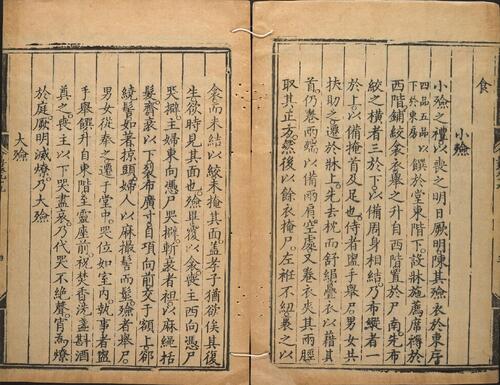 食
小殮
小殮之禮以喪之明日厥明陳其殮衣於東序
四品五品以
下於東房
饌於堂東階下設牀施薦席褥於
西階鋪絞衾衣舉之升自西階置於尸南先布
絞之橫者三於下以備周身相結乃布縱者一
於上以備掩首及足也侍者盥手舉尸男女共
扶助之遷於牀上先去枕而舒絹疊衣以藉其
首仍卷兩端以備兩肩空處又卷衣夾其兩脛
取其正方然後以餘衣掩尸左衽不紐裹之以
衾而未結以絞未掩其面蓋孝子猶欲俟其復
生欲時見其面也殮畢覆以衾喪主西向憑尸
哭擗主婦東向憑尸哭擗斬衰者袒以麻繩括
髮齊衰以下裂布廣寸自項向前交于額上卻
繞髻如著掠頭婦人以麻撮髻而髽殮者舉尸
男女從奉之遷于堂中哭位如室內執事者盥
手舉饌升自東階至靈座前祝焚香洗盞斟酒
奠之喪主以下哭盡哀乃代哭不絕聲宵為燎
於庭厥明滅燎乃大殮
大殮